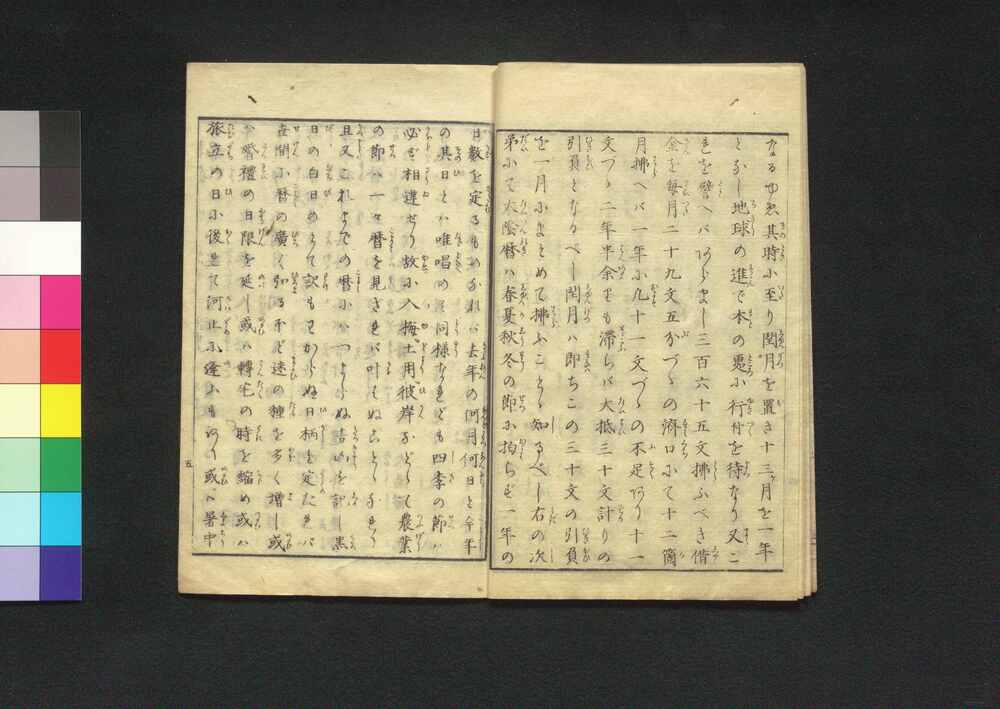 なるゆゑ其時小至り閏月を置き十三ヶ月を一年
となし地球の進で本の處小行付を待なり又こ
色を譬へバあらまし三百六十五文拂ふべき借
金を毎月二十九文五分づゝの済口にて十二箇
月拂へバ一年小凡十一文づゝの不足あり十一
文づゝ二年半余も滞らバ大抵三十文計りの
引負となるべし閏月ハ即ちこの三十文の引負
を一月小まとめて拂ふことゝ知るべし右の次
第小て大陰暦ハ春夏秋冬の節小拘らず一年の
日数を定るものなれバ去年の何月何日と今年
の其日とハ唯唱の同様なれども四季の節ハ
必ず相違せり故小入梅土用彼岸などとて農業
の節ハ一々暦を見ざれバ叶ハぬことゝなれり
且又これまでの暦小ハつまらぬ吉凶を記し黒
日の白日のとて訳もわからぬ日柄を定たれバ
世間小暦の廣く弘るほど迷の種を多く増し或
ハ婚禮の日限を延し或ハ轉宅の時を縮め或ハ
旅立の日小後れて河止小逢ふもあり或ハ暑中
五